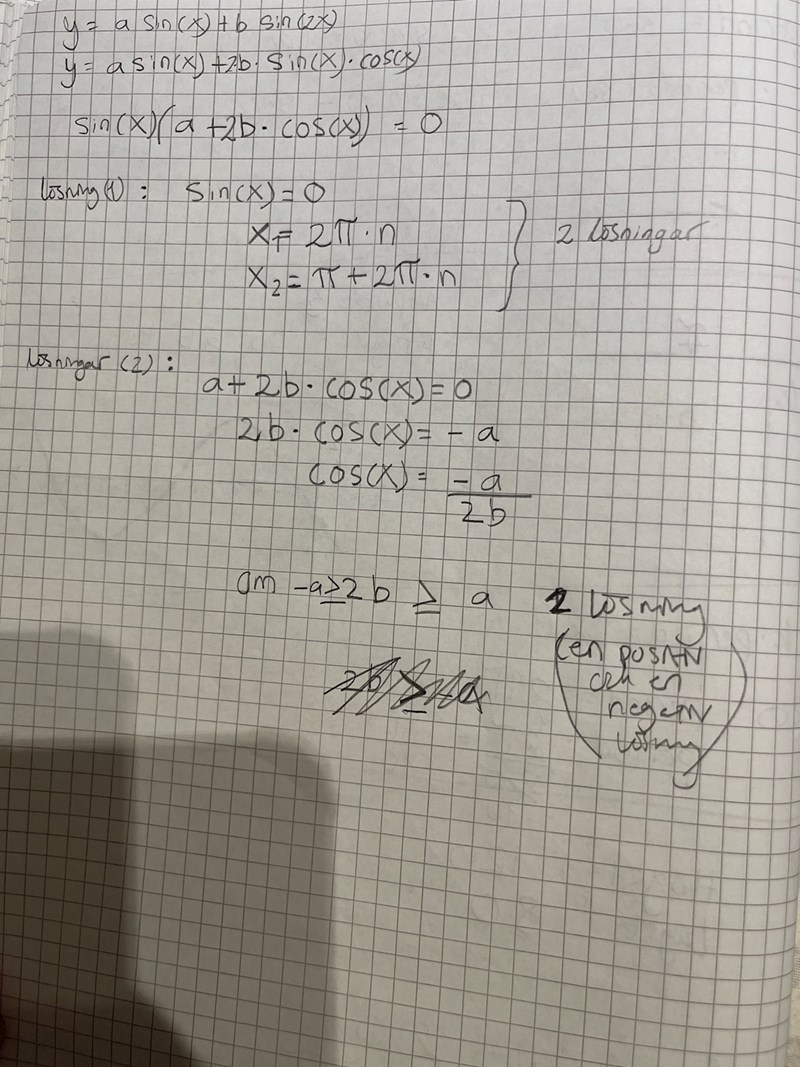 y = a sin(x) + b sin(2x)
y = a sin(x) + 2b · sin(x) · cos(x)
sin(x)(a + 2b · cos(x)) = 0
lösning(1) : sin(x) = 0
x₁ = 2π · n
x₂ = π + 2π · n
} 2 lösningar
lösningar (2) :
a + 2b · cos(x) = 0
2b · cos(x) = - a
cos(x) = -a/2b
om -a ≥ 2b ≥ a 2 lösning
(en positiv
och en
negativ
lösning)